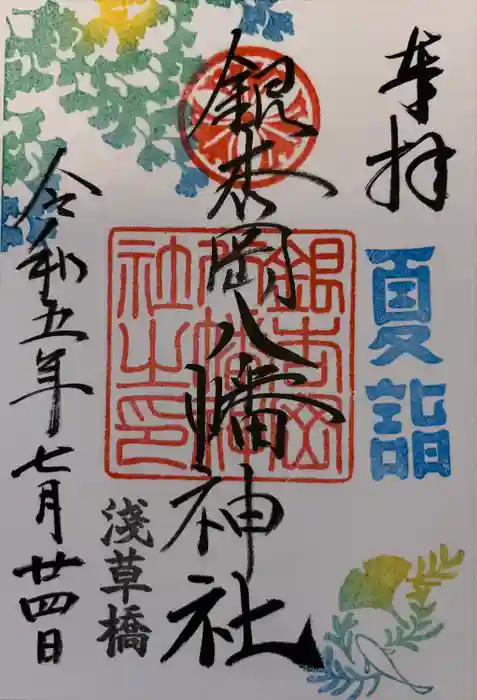 奉拝
夏詣
銀杏岡八幡神社
銀杏岡八幡神社之印
淺草橋
令和五年七月廿四日